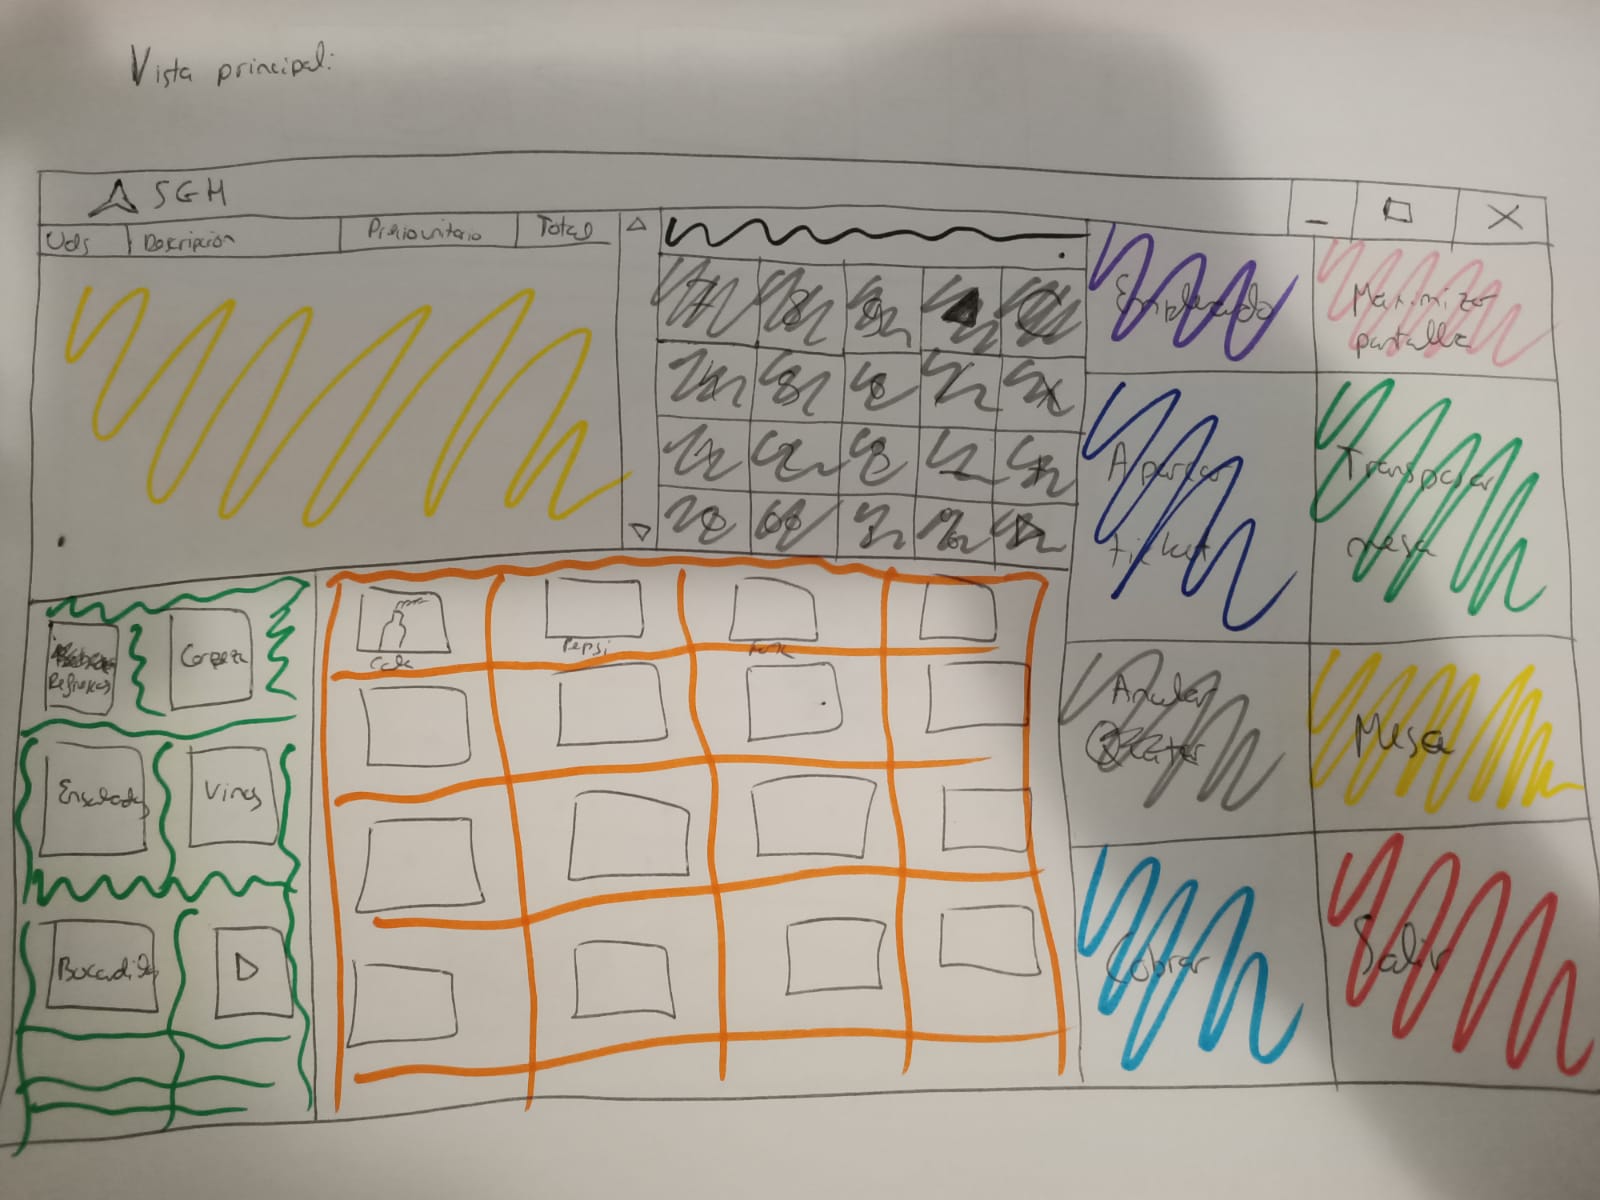 Vista principal:
SGH
Uds Descripción Preciounitario Total
7 8 9 C
4 5 6 / x
1 2 3 - +
0 00 , %
Empleado
Maximizar
pantalla
Aparcar
ticket
Transpasar
mesa
Anular
Mesa
Cobrar
Salir
Refrescos
Cerveza
Ensaladas
Vinos
Bocadillos
Cola
Pepsi